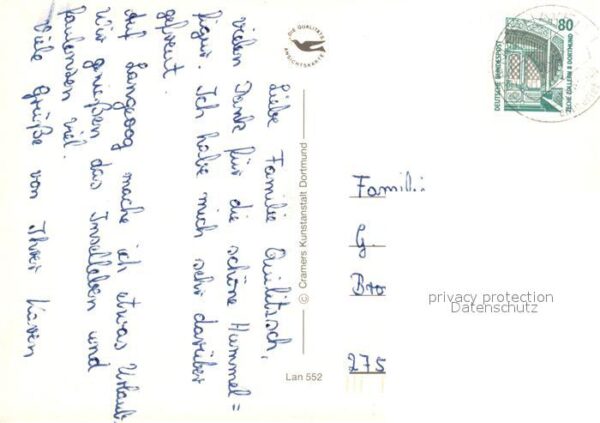 Liebe Familie Quilitzsch,
vielen Dank für die schöne Hummel=
figur. Ich habe mich sehr darüber
gefreut.
Auf Langeoog mache ich etwas Urlaub.
Wir genießen das Inselleben und
faulenzen viel.
Viele Grüße von Ihrer Karen
DIE QUALITÄTS
ANSICHTSKARTE
© Cramers Kunstanstalt Dortmund
Lan 552
80
DEUTSCHE BUNDESPOST
ZECHE ZOLLERN II DORTMUND
Famili
G.
275
privacy protection
Datenschutz